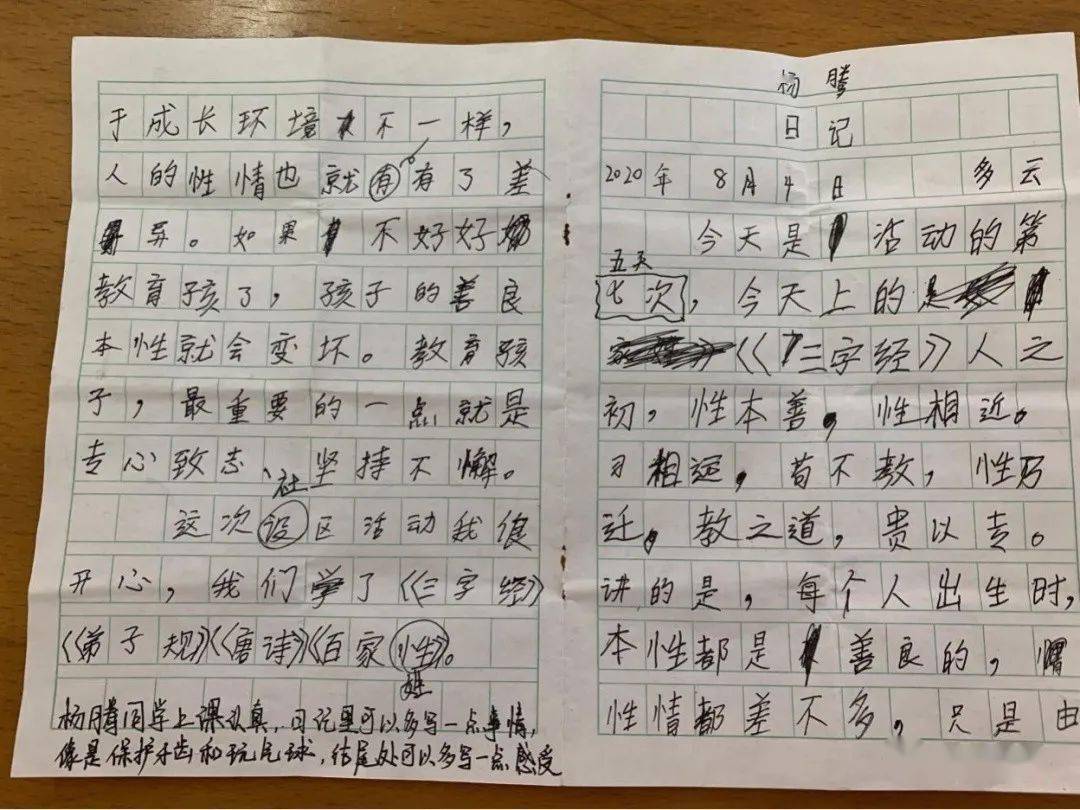 杨腾
日记
2020年 8月4日 多云
今天是活动的第
五天
七次，今天上的是
《三字经》人之
初，性本善，性相近。
习相远，苟不教，性乃
迁。教之道，贵以专。
讲的是，每个人出生时，
本性都是善良的，
性情都差不多，只是由
于成长环境不一样，
人的性情也就有有了差
异。如果不好好
教育孩了，孩子的善良
本性就会变坏。教育孩
子，最重要的一点就是
专心致志、坚持不懈。
社
这次设区活动我很
开心，我们学了《三字经》
《弟子规》《唐诗》《百家性》。
姓
杨腾同学上课认真，日记里可以多写一点事情，
像是保护牙齿和玩气球，结尾处可以多写一点感受